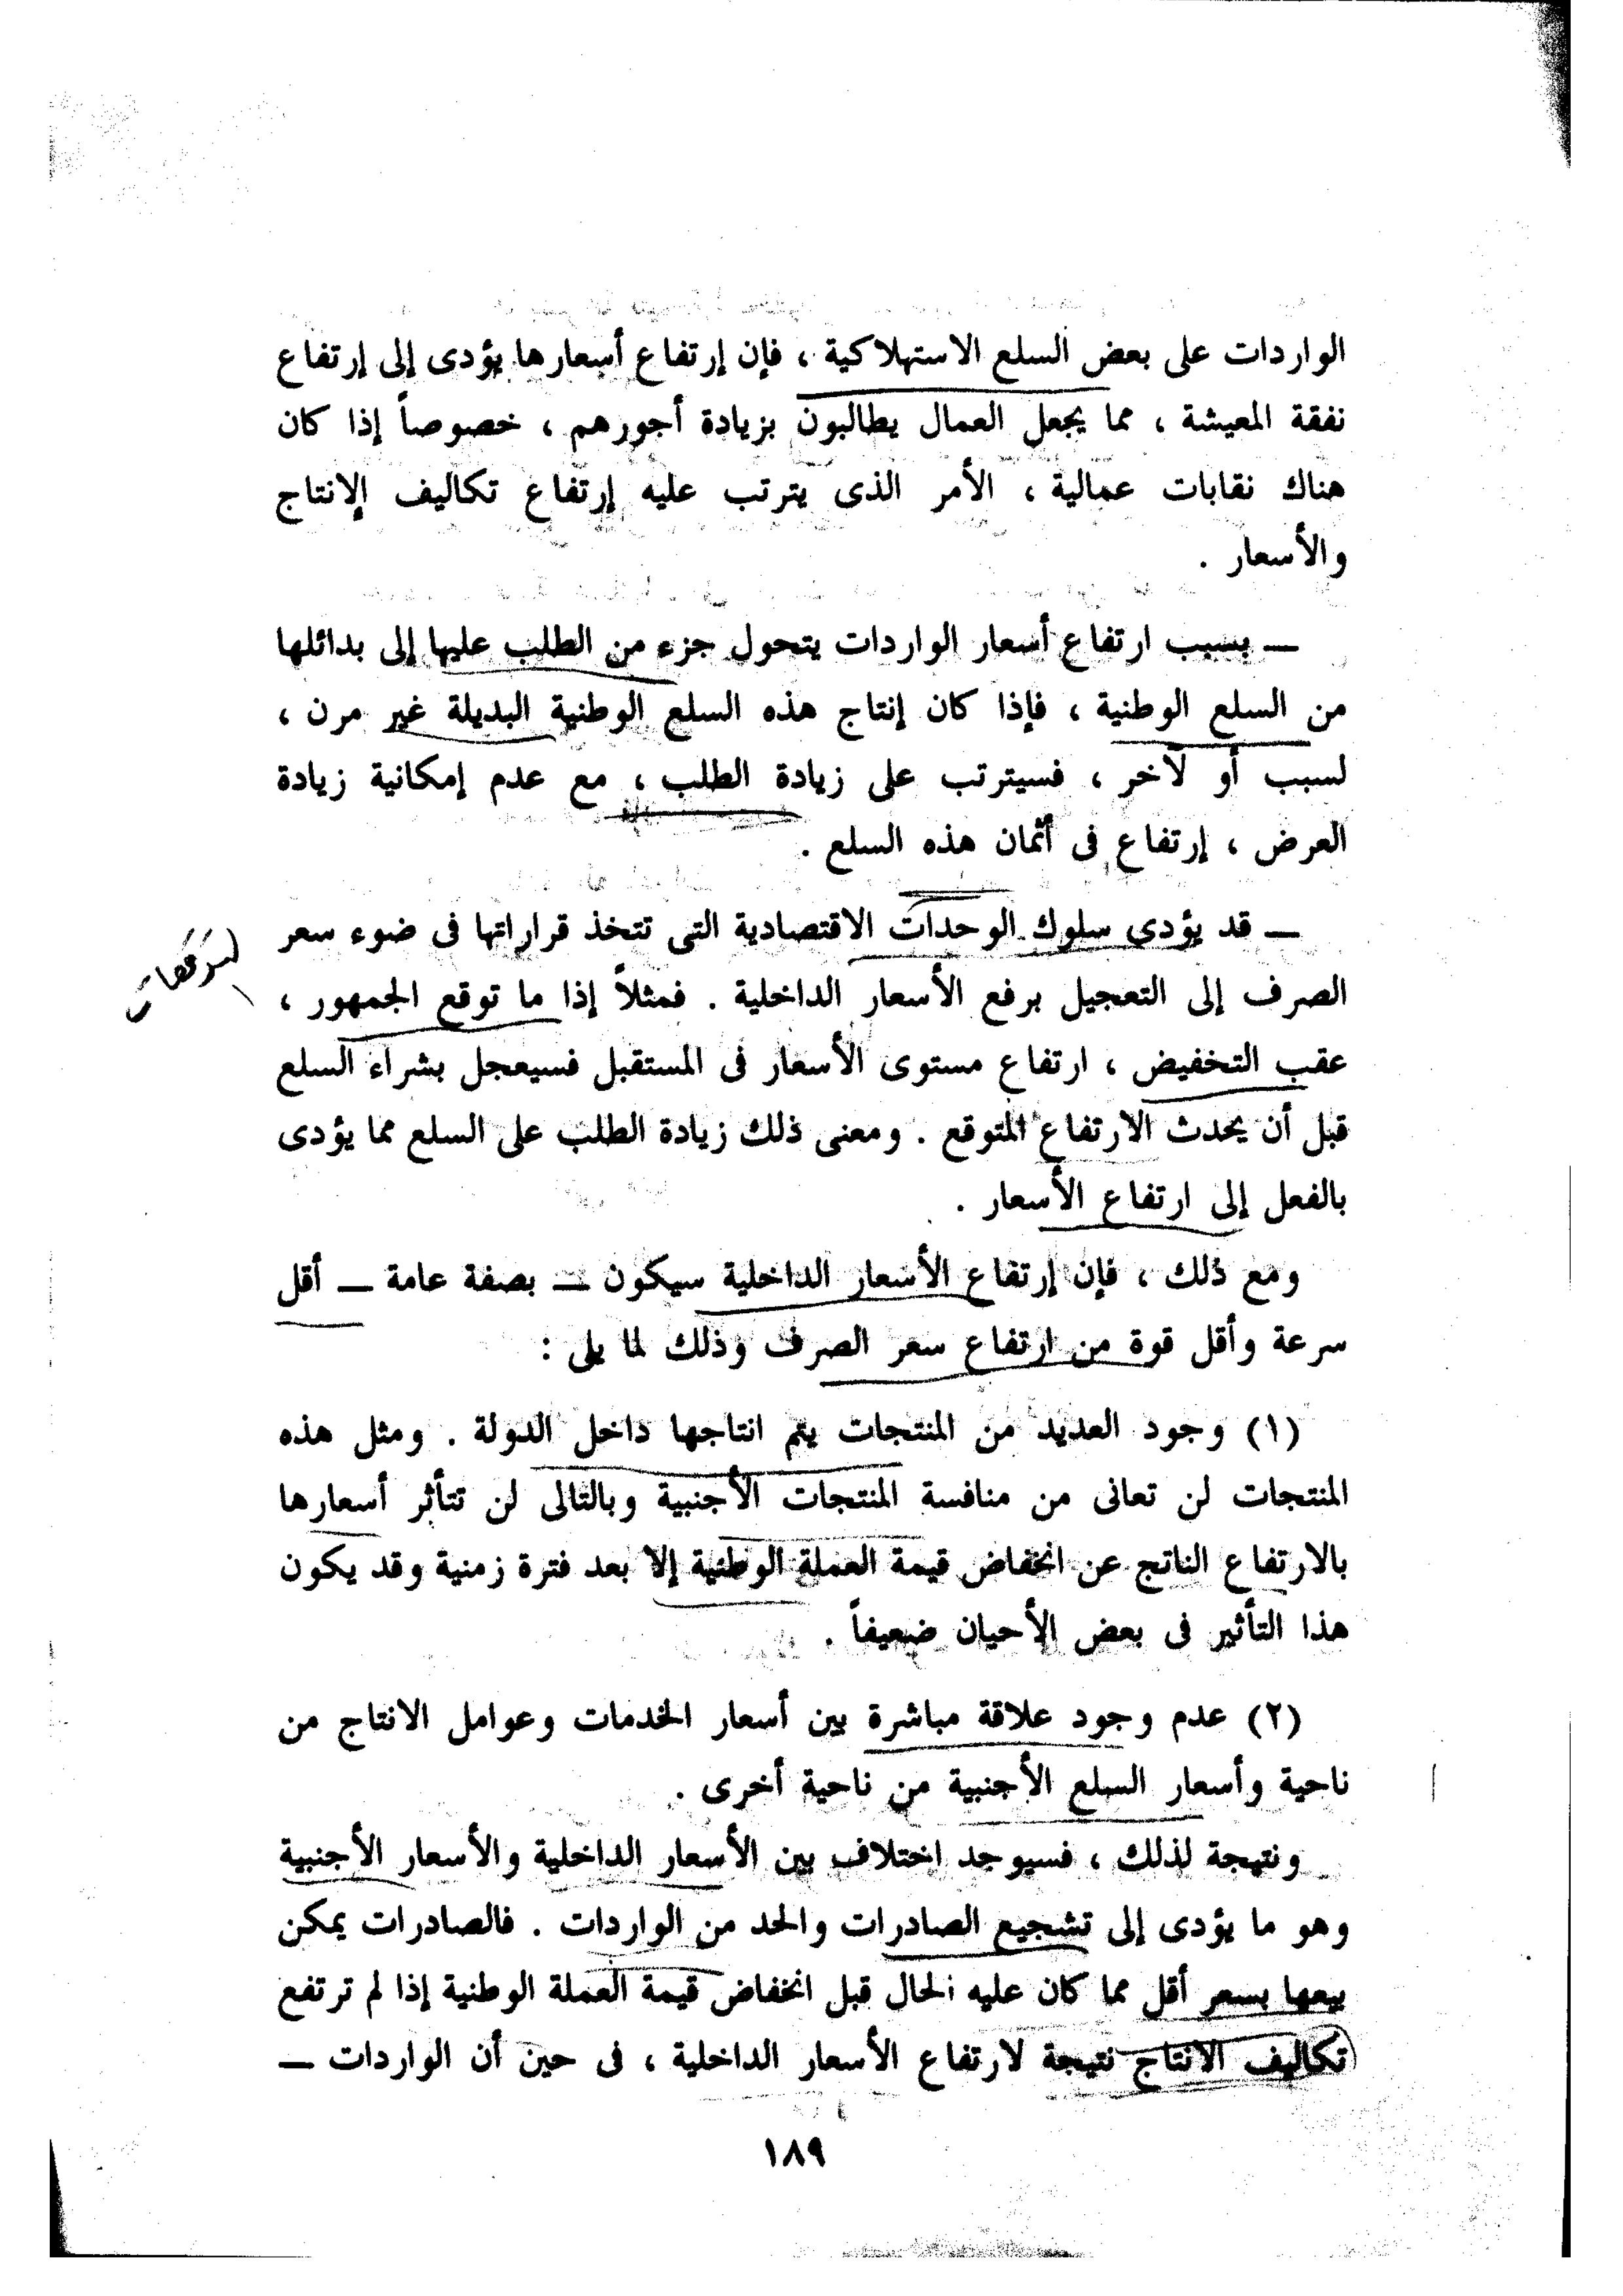 الواردات على بعض السلع الاستهلاكية ، فإن إرتفاع أسعارها يؤدى إلى إرتفاع
نفقة المعيشة ، مما يجعل العمال يطالبون بزيادة أجورهم ، خصوصاً إذا كان
هناك نقابات عمالية ، الأمر الذى يترتب عليه إرتفاع تكاليف الإنتاج
والأسعار .
ــ بسبب ارتفاع أسعار الواردات يتحول جزء من الطلب عليها إلى بدائلها
من السلع الوطنية ، فإذا كان إنتاج هذه السلع الوطنية البديلة غير مرن ،
لسبب أو لآخر ، فسيترتب على زيادة الطلب ، مع عدم إمكانية زيادة
العرض ، إرتفاع فى أثمان هذه السلع .
ــ قد يؤدى سلوك الوحدات الاقتصادية التى تتخذ قراراتها فى ضوء سعر
الصرف إلى التعجيل برفع الأسعار الداخلية . فمثلاً إذا ما توقع الجمهور ،
عقب التخفيض ، ارتفاع مستوى الأسعار فى المستقبل فسيعجل بشراء السلع
قبل أن يحدث الارتفاع المتوقع . ومعنى ذلك زيادة الطلب على السلع مما يؤدى
بالفعل إلى ارتفاع الأسعار .
ومع ذلك ، فإن إرتفاع الأسعار الداخلية سيكون ــ بصفة عامة ــ أقل
سرعة وأقل قوة من ارتفاع سعر الصرف وذلك لما يلى :
(١) وجود العديد من المنتجات يتم انتاجها داخل الدولة . ومثل هذه
المنتجات لن تعانى من منافسة المنتجات الأجنبية وبالتالى لن تتأثر أسعارها
بالارتفاع الناتج عن انخفاض قيمة العملة الوطنية إلا بعد فترة زمنية وقد يكون
هذا التأثير فى بعض الأحيان ضعيفاً .
(٢) عدم وجود علاقة مباشرة بين أسعار الخدمات وعوامل الانتاج من
ناحية وأسعار السلع الأجنبية من ناحية أخرى .
ونتيجة لذلك ، فسيوجد اختلاف بين الأسعار الداخلية والأسعار الأجنبية
وهو ما يؤدى إلى تشجيع الصادرات والحد من الواردات . فالصادرات يمكن
بيعها بسعر أقل مما كان عليه الحال قبل انخفاض قيمة العملة الوطنية إذا لم ترتفع
تكاليف الانتاج نتيجة لارتفاع الأسعار الداخلية ، فى حين أن الواردات ــ
١٨٩